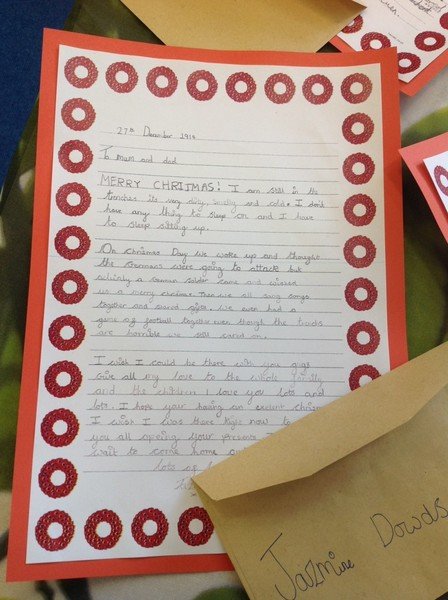 27th December 1914
To Mum and dad
MERRY CHRISTMAS! I am still in the
trenches its very dirty, smelly and cold. I don't
have any thing to sleep on and I have
to sleep sitting up.
On chrismas Day we woke up and thought
the Germans were going to attack but
a German soldier came and wished
us a merry christmas. Then we all sang songs
together and shared gifts. We even had a
game of football together even though the
are horrible we still carried on.
I wish I could be there with you guys
Give all my love to the whole family
and the children I love you lots and
lots. I hope your having an
I wish I was there right now to
you all your presents I
wait to come home
lots of
Jazmine Dowds